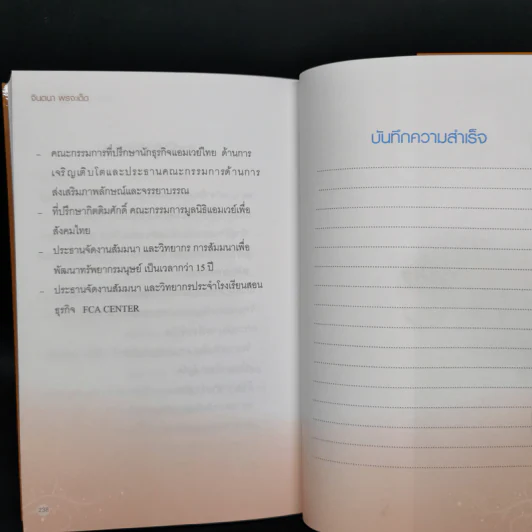 จินตนา พรจะเด็ด
– คณะกรรมการที่ปรึกษานักธุรกิจแอมเวย์ไทย ด้านการ
เจริญเติบโตและประธานคณะกรรมการด้านการ
ส่งเสริมภาพลักษณ์และจรรยาบรรณ
– ที่ปรึกษากิตติมศักดิ์ คณะกรรมการมูลนิธิแอมเวย์เพื่อ
สังคมไทย
– ประธานจัดงานสัมมนา และวิทยากร การสัมมนาเพื่อ
พัฒนาทรัพยากรมนุษย์ เป็นเวลากว่า 15 ปี
– ประธานจัดงานสัมมนา และวิทยากรประจำโรงเรียนสอน
ธุรกิจ FCA CENTER
บันทึกความสำเร็จ